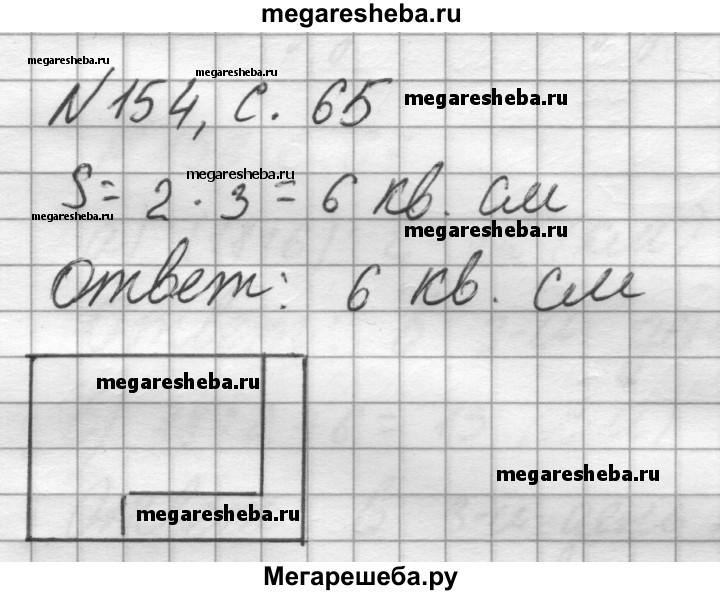 megaresheba.ru
megaresheba.ru
megaresheba.ru
N 154, с. 65
megaresheba.ru
S = 2 · 3 = 6 кв. см
megaresheba.ru
megaresheba.ru
megaresheba.ru
ответ: 6 кв. см
megaresheba.ru
megaresheba.ru
megaresheba.ru
Мегарешеба.ру